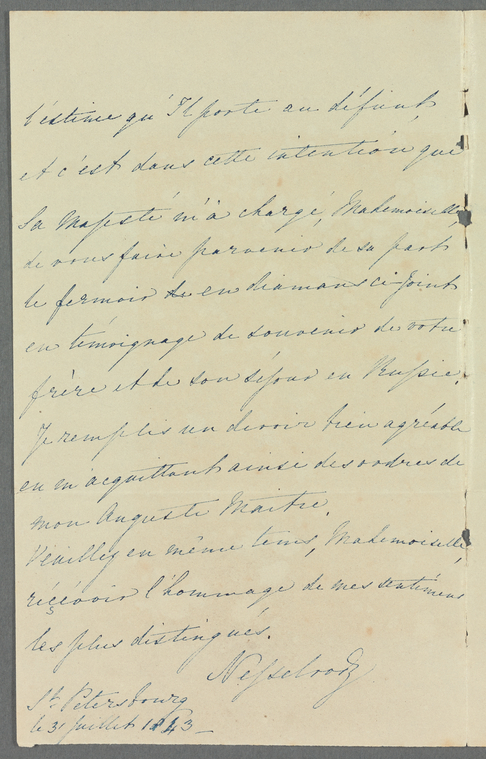 l'éstime qu'Il porte au défunt,
et c'est dans cette intention que
Sa Majesté m'a chargé, Mademoiselle,
de vous faire parvenir de sa part
le fermoir en diamans ci-joint
en témoignage de souvenir de votre
frère et de son séjour en Russie.
Je remplis un devoir bien agréable
en m'acquittant ainsi des ordres de
mon Auguste Maitre.
Véuillez en même tems, Mademoiselle,
reçévoir l'hommage de mes sentimens
les plus distingués.
Nesselrode
St. Petersbourg
le 31 Juillet 1843